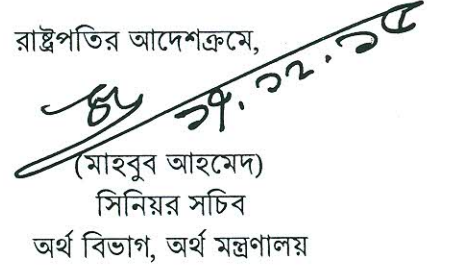 রাষ্ট্রপতির আদেশক্রমে,
১৭.১২.১৫
(মাহবুব আহমেদ)
সিনিয়র সচিব
অর্থ বিভাগ, অর্থ মন্ত্রণালয়